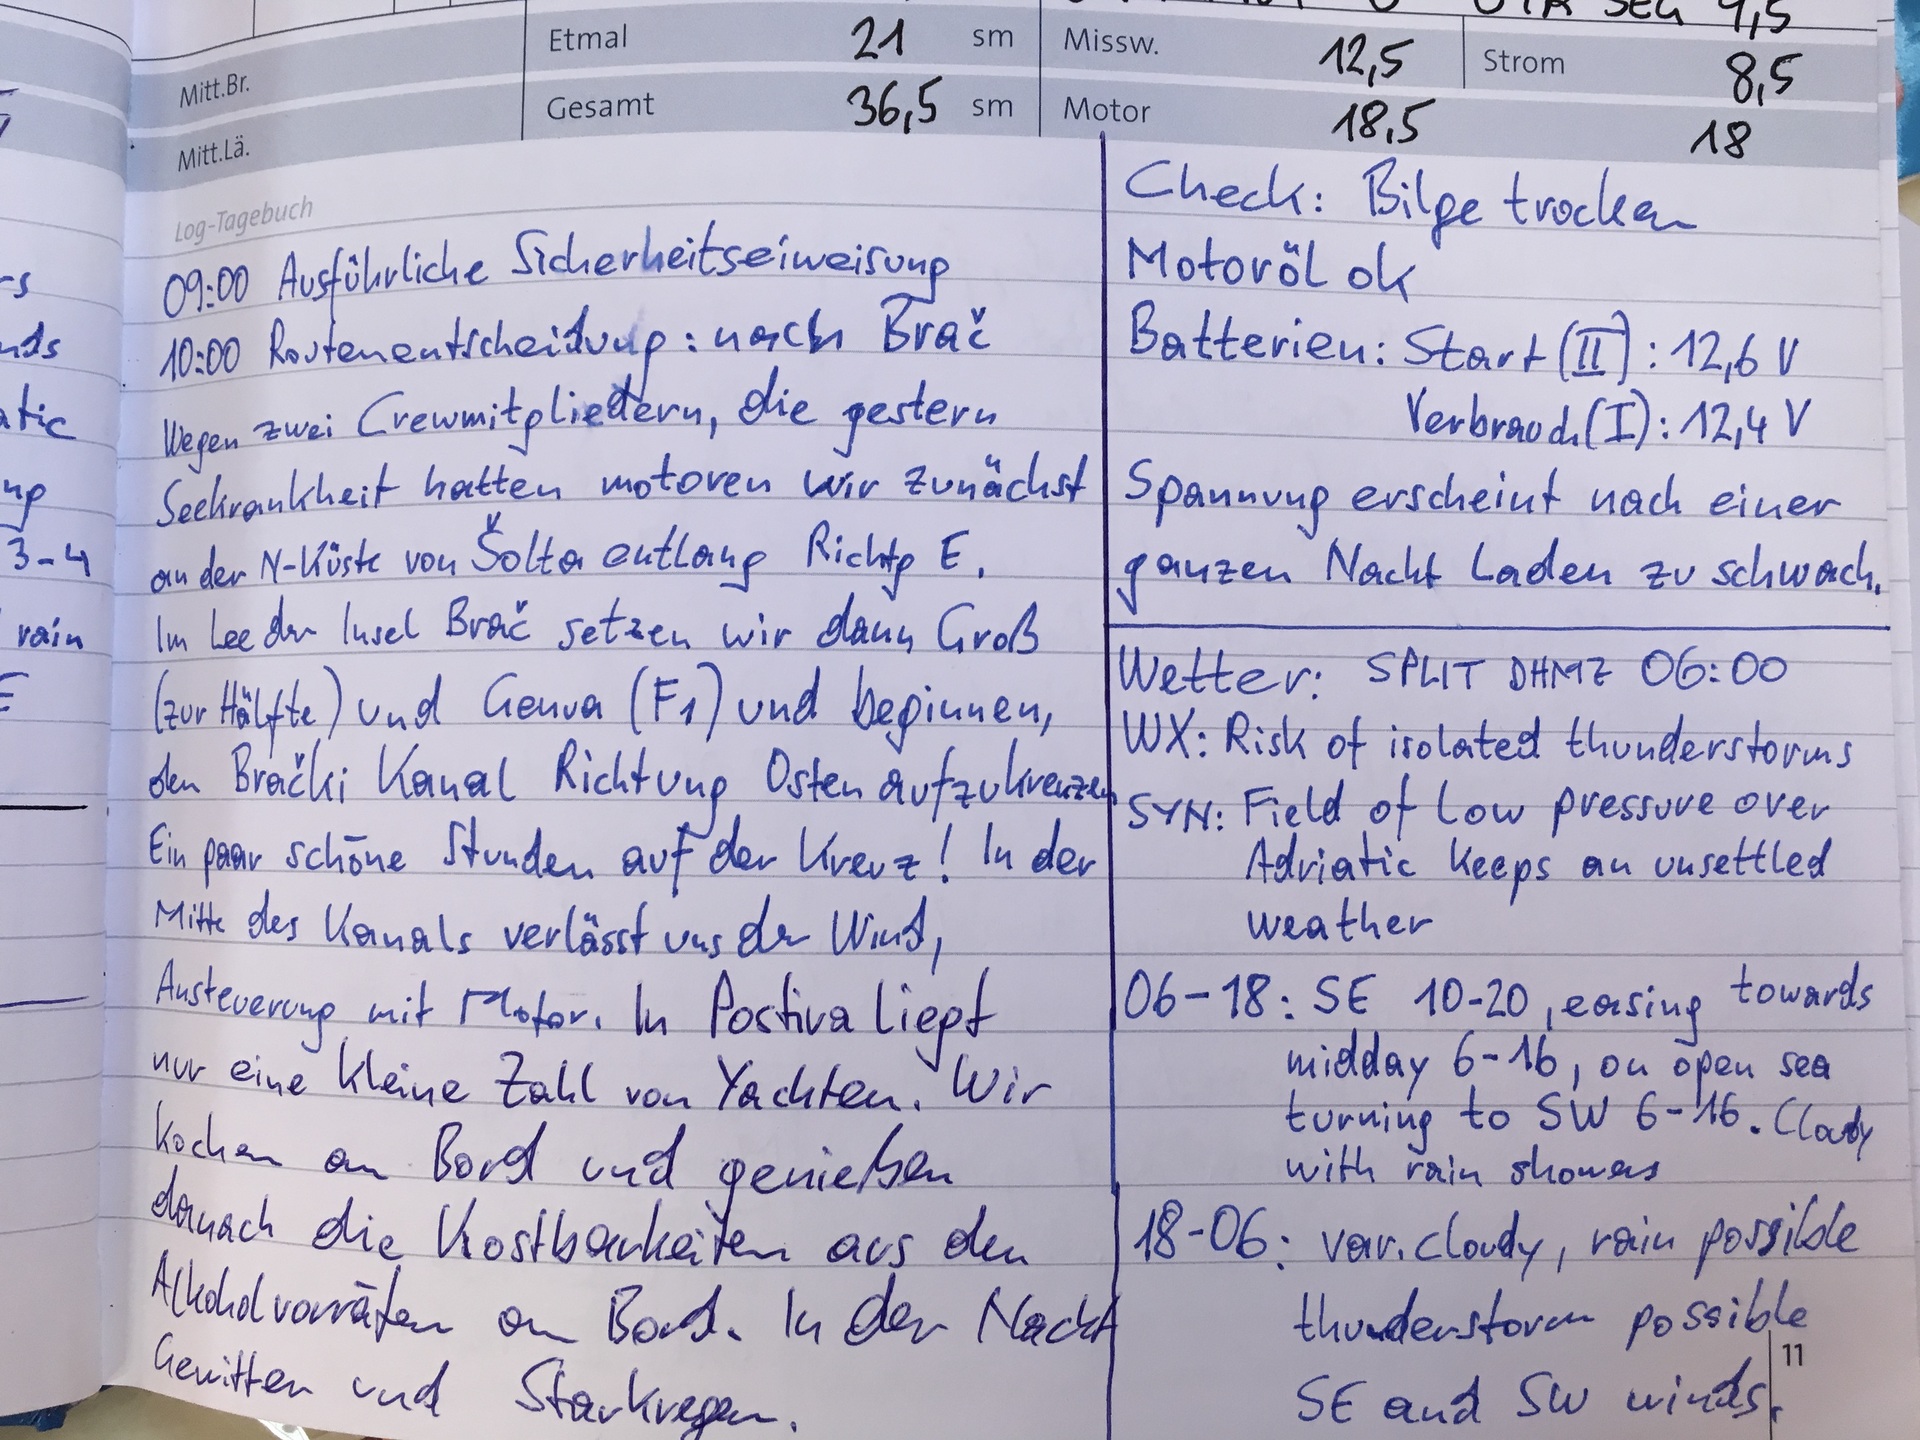 Etmal 21 sm Missw. 12,5 Strom 8,5
Mitt.Br.
Gesamt 36,5 sm Motor 18,5 18
Mitt.Lä.
Log-Tagebuch
09:00 Ausführliche Sicherheitseiweisung
10:00 Routenentscheidung: nach Brač
Wegen zwei Crewmitgliedern, die gestern
Seekrankheit hatten motoren wir zunächst
an der N-Küste von Šolta entlang Richtg E.
Im Lee der Insel Brač setzen wir dann Groß
(zur Hälfte) und Genua (F1) und beginnen,
den Brački Kanal Richtung Osten aufzukreuzen
Ein paar schöne Stunden auf der Kreuz! In der
Mitte des Kanals verlässt uns der Wind,
Ansteuerung mit Motor. In Postira liegt
nur eine kleine Zahl von Yachten. Wir
kochen an Bord und genießen
danach die Kostbarkeiten aus den
Alkoholvorräten an Bord. In der Nacht
Gewitter und Starkregen.
Check: Bilge trocken
Motoröl ok
Batterien: Start (II): 12,6 V
Verbrauch (I): 12,4 V
Spannung erscheint nach einer
ganzen Nacht Laden zu schwach.
Wetter: SPLIT DHMZ 06:00
WX: Risk of isolated thunderstorms
SYN: Field of low pressure over
Adriatic keeps an unsettled
weather
06-18: SE 10-20, easing towards
midday 6-16, on open sea
turning to SW 6-16. Cloudy
with rain showers
18-06: var. cloudy, rain possible
thunderstorm possible
SE and SW winds.
11